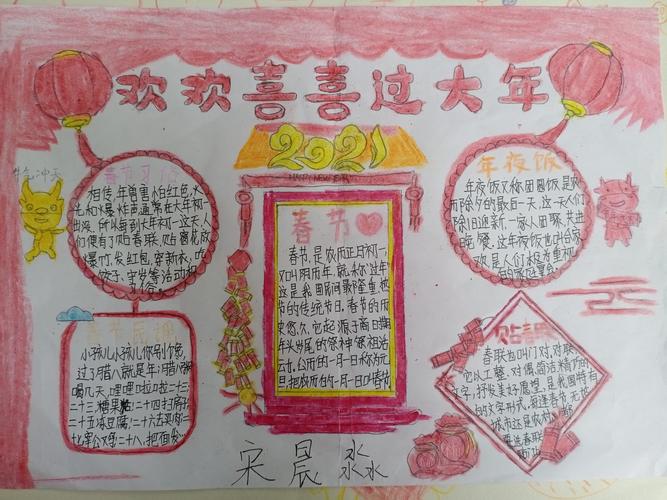 欢欢喜喜过大年
2021
HAPPY NEW YEAR
牛气冲天
春节习俗
相传,年曾害怕红色,火
光和爆炸声,通常在大年初一
出没,所以每到大年初一这天,人
们便有了贴春联,贴窗花,放
爆竹,发红包,穿新衣,吃
饺子,守岁等活动和
习俗。
春节
春节,是农历正月初一,
又叫阴历年,就称"过年"
这是我国民间最隆重,最热
节的传统节日。春节的历史
悠久,它起源于商日期
年头岁尾的祭神祭祖活
云力。公历的一月一日称为元
旦,把农历的一月一日叫春节
年夜饭
年夜饭又称团圆饭是农
历除夕的最后一天,这一天人们
除旧迎新,一家人团聚,共进
晚餐。这年夜饭也叫合家
欢,是人们极为重视
的家庭宴会
春节民谣
小孩儿小孩儿你别馋,
过了腊八就是年;腊八粥
喝几天,哩哩啦啦二十三;
二十三,糖果粘;二十四扫房子
二十五冻豆腐;二十六去买肉;二
十七宰公鸡;二十八,把面发
贴春联
春联也叫门对,对联
它以工整、对偶、简洁精巧的
文字,抒发美好愿望,是我国特有
的文字形式,每逢春节,无论
城市还是农村
要选春联
宋晨淼